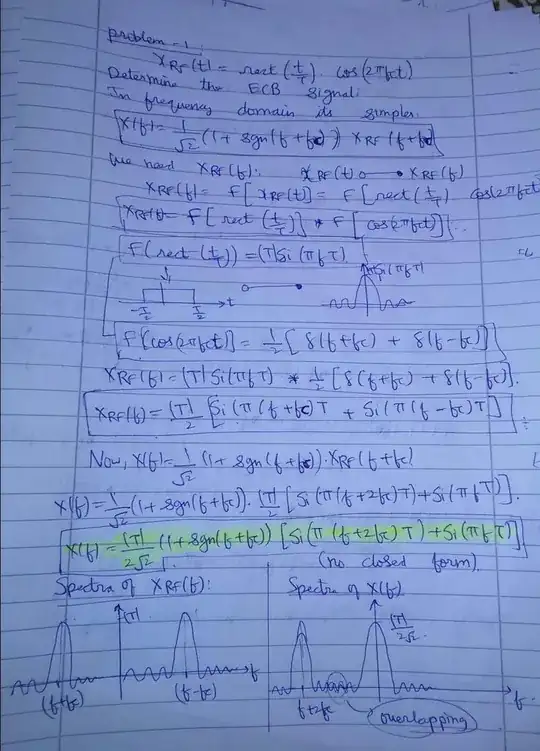 problem - 1:
x_RF(t) = rect(t/T) . cos(2πfct)
Determine the ECB signal:
In frequency domain its simpler.
X(f) = 1/√2 (1 + sgn(f+fc)) X_RF(f+fc)
We need X_RF(f). x_RF(t) o—• X_RF(f)
X_RF(f) = F[x_RF(t)] = F[rect(t/T) cos(2πfct)]
X_RF(f) = F[rect(t/T)] * F[cos(2πfct)]
F(rect(t/T)) = |T| Si(πfT)
|T| Si(πfT)
-T/2 T/2 t
F[cos(2πfct)] = 1/2 [δ(f+fc) + δ(f-fc)]
X_RF(f) = |T| Si(πfT) * 1/2 [δ(f+fc) + δ(f-fc)].
X_RF(f) = |T|/2 [Si(π(f+fc)T + Si(π(f-fc)T)]
Now, X(f) = 1/√2 (1 + sgn(f+fc)) . X_RF(f+fc)
X(f) = 1/√2 (1 + sgn(f+fc)) . |T|/2 [Si(π(f+2fc)T) + Si(πfT)].
X(f) = |T|/2√2 (1 + sgn(f+fc)) [Si(π(f+2fc)T) + Si(πfT)]
(no closed form).
Spectra of X_RF(f): Spectra of X(f)
|T| |T|/2√2
(f+fc) (f-fc) f f+2fc f
overlapping